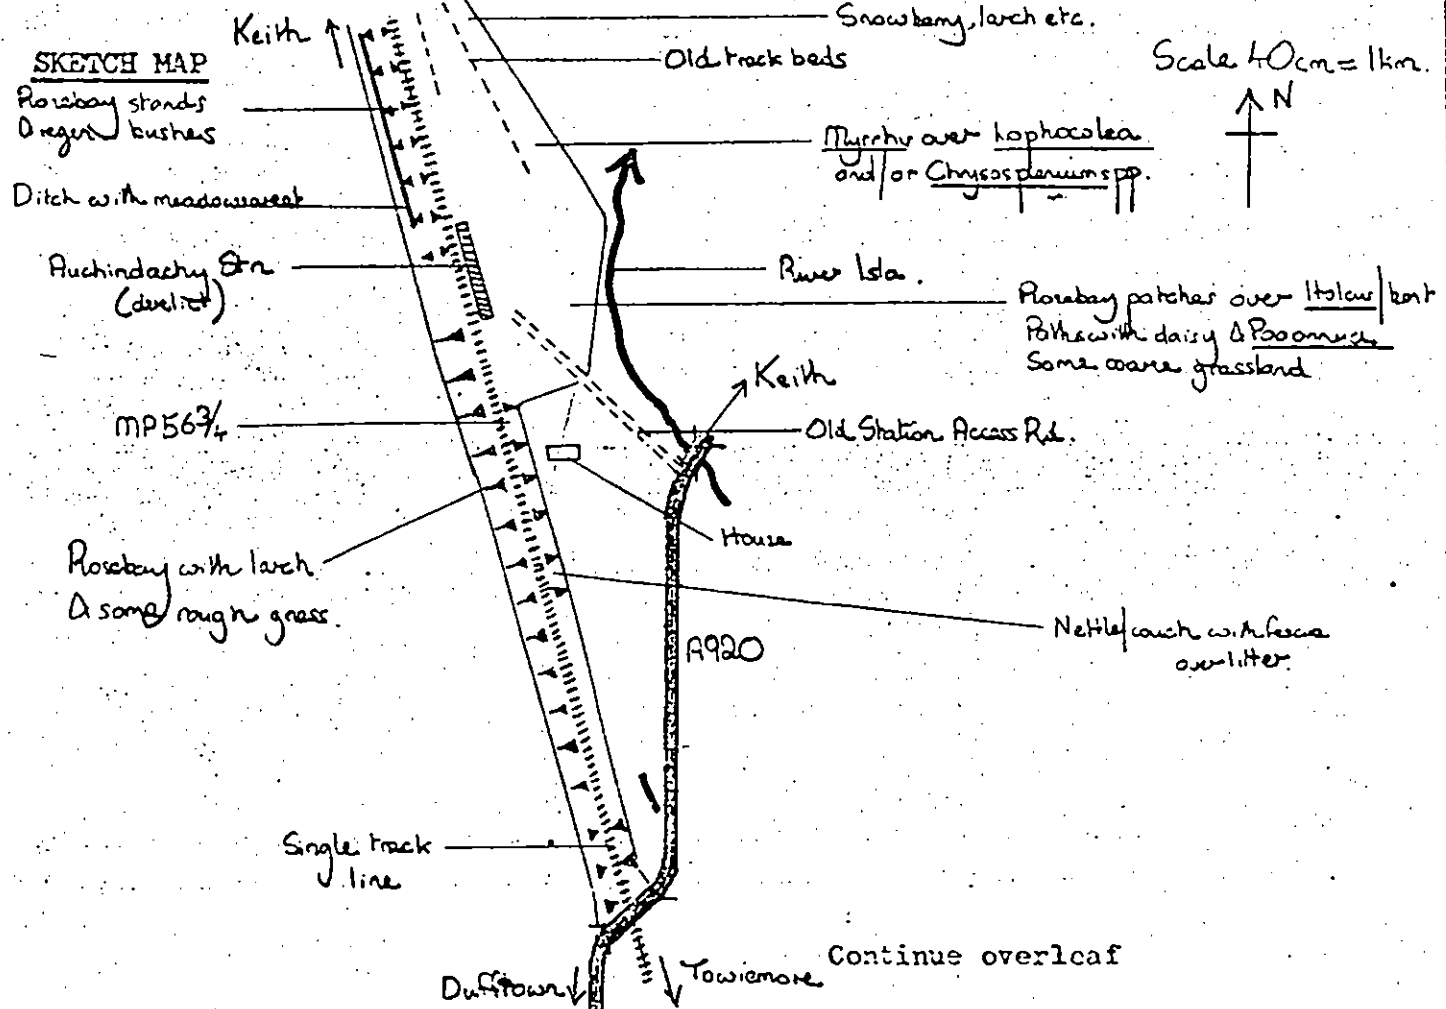 Keith
Snowberry, larch etc.
SKETCH MAP
Old track beds
Scale 40cm = 1km.
N
Rosebay stands
& regen bushes
Myrrhis over Lophocolea
and/or Chrysosplenium spp.
Ditch with meadowsweet
Auchindachy Stn
(derelict)
River Isla.
Rosebay patches over Holcus/bent
Paths with daisy & Poa annua
Some coarse grassland
Keith
MP 56¾
Old Station Access Rd.
House
Rosebay with larch
& some rough grass.
Nettle/couch with
over litter.
A920
Single track
line
Dufftown
Towiemore
Continue overleaf